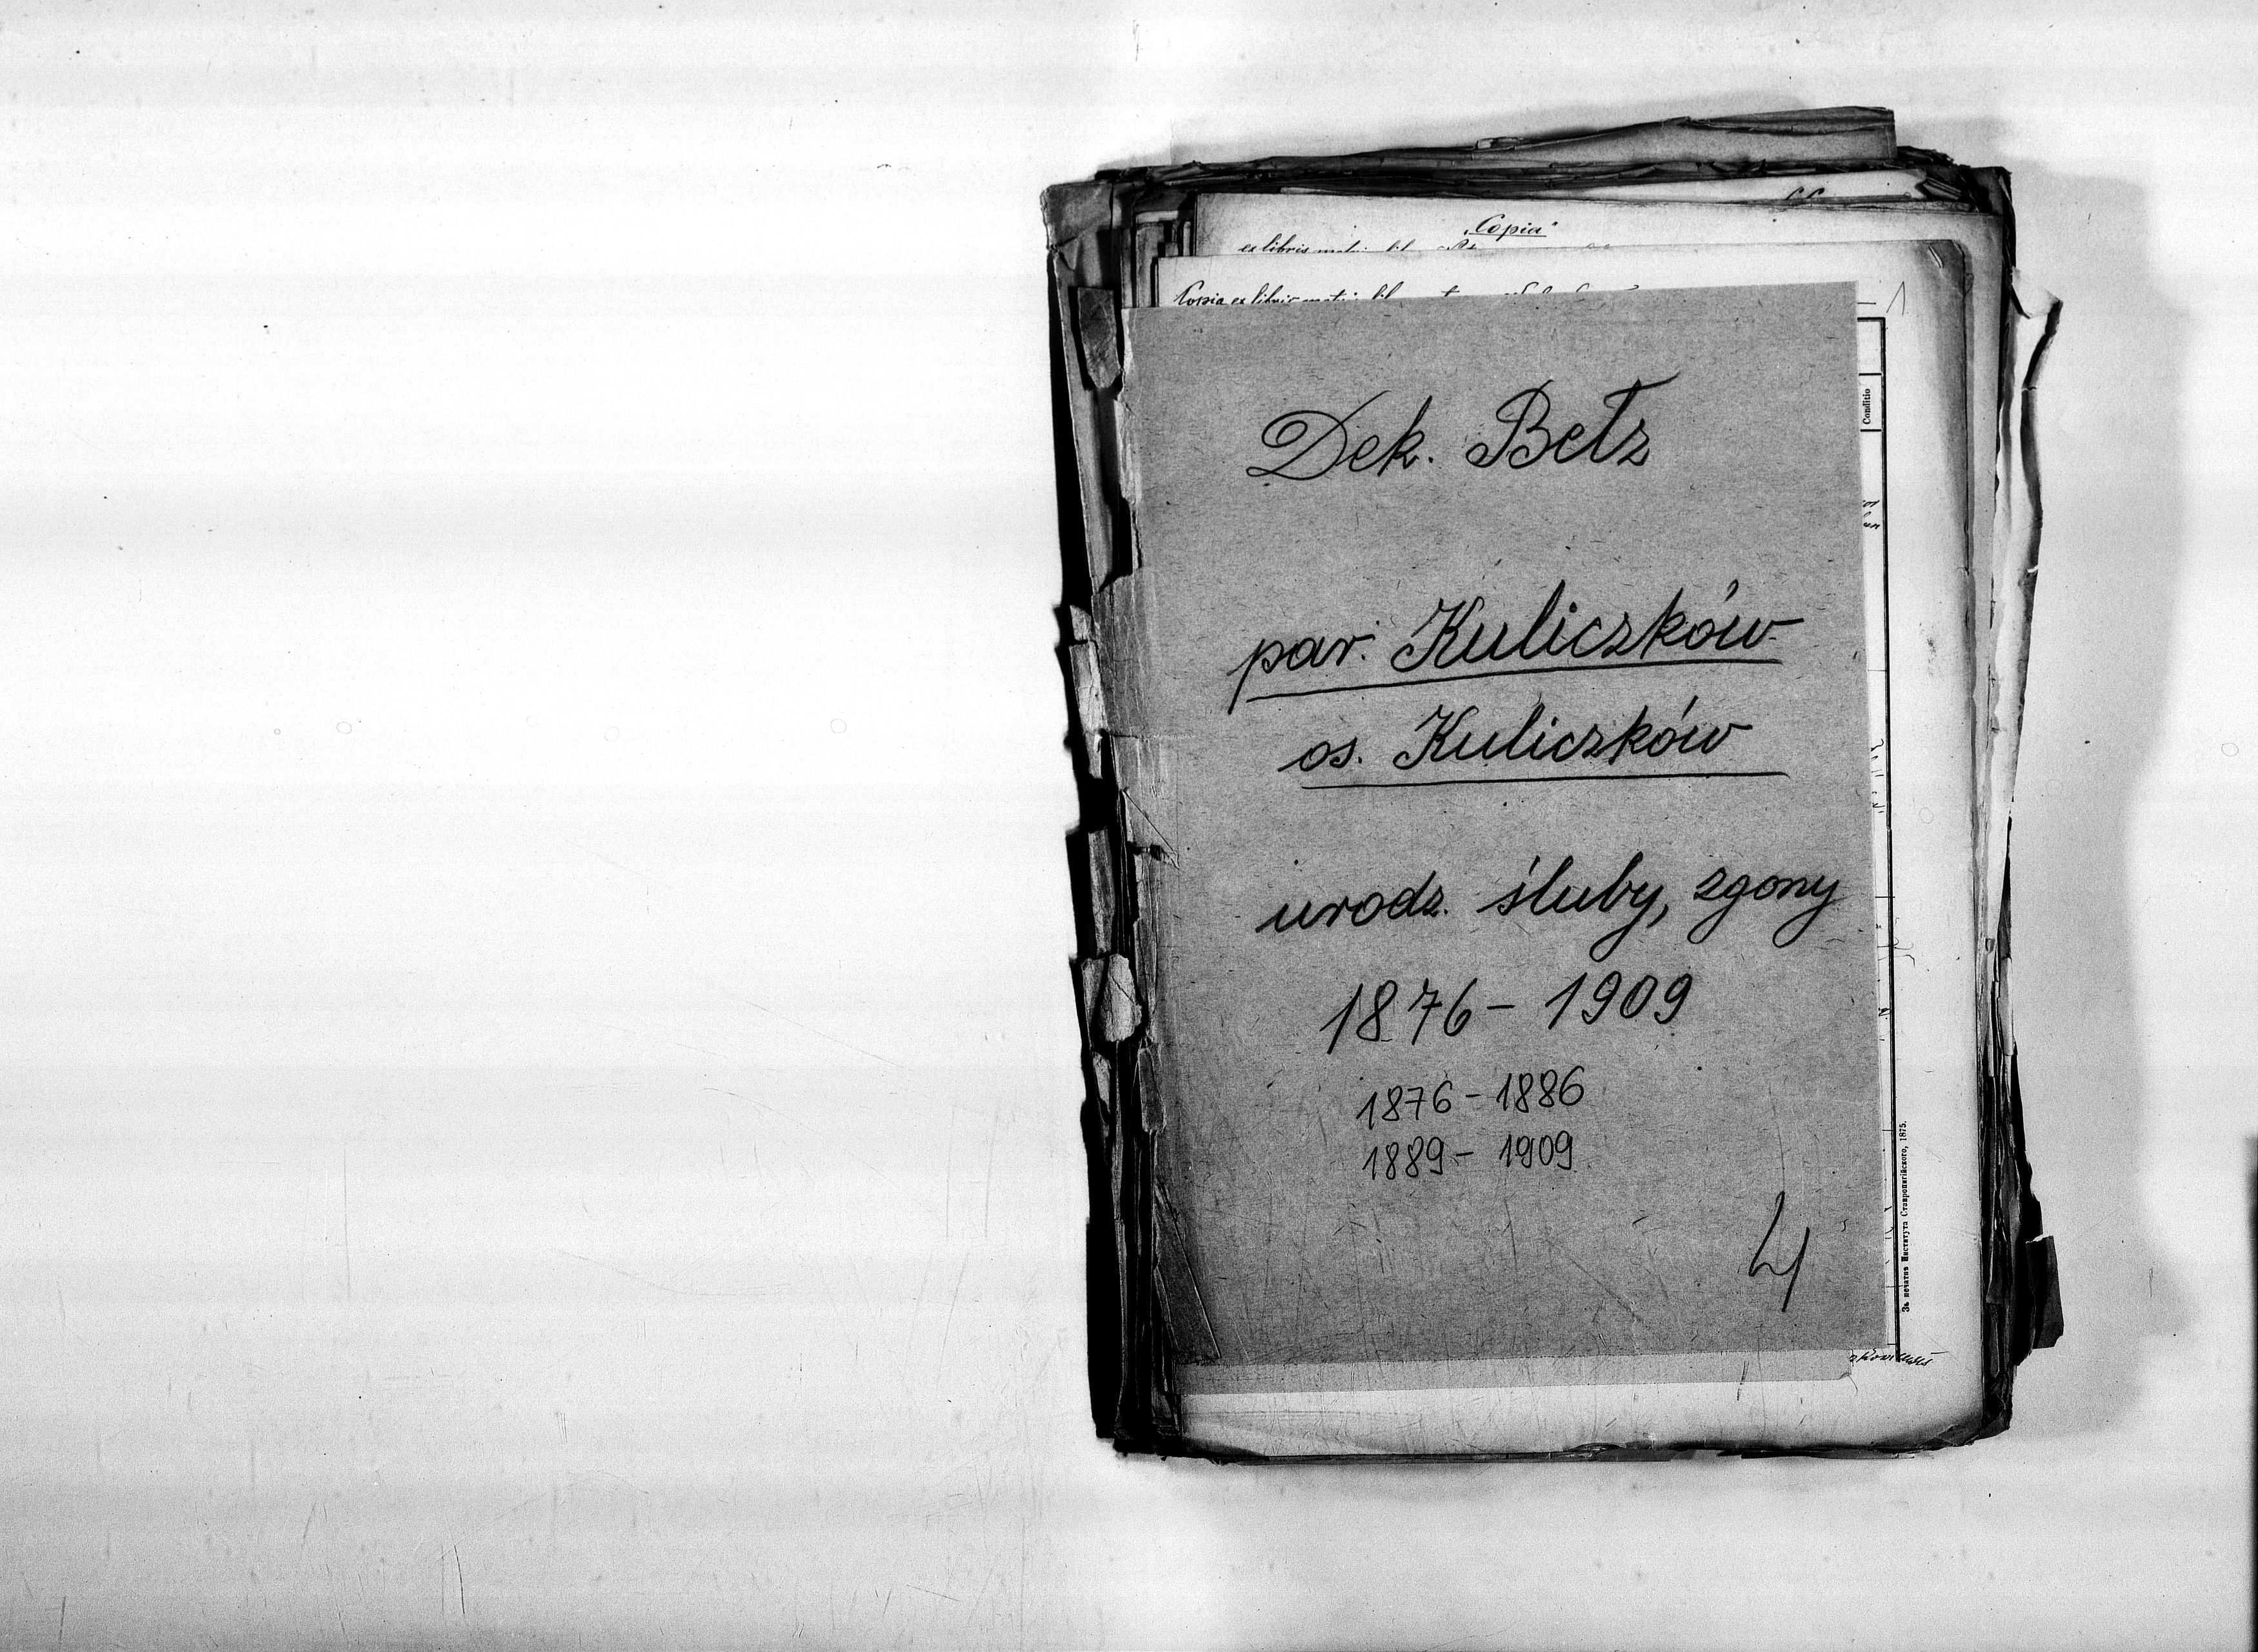 „Copia"
ex libris
Copia ex libris
1
Conditio
Dek. Bełz
par. Kuliczków
os. Kuliczków
urodz. śluby, zgony
1876 - 1909
1876 - 1886
1889 - 1909
4
Зъ печатнѣ Института Ставропигійского, 1875.